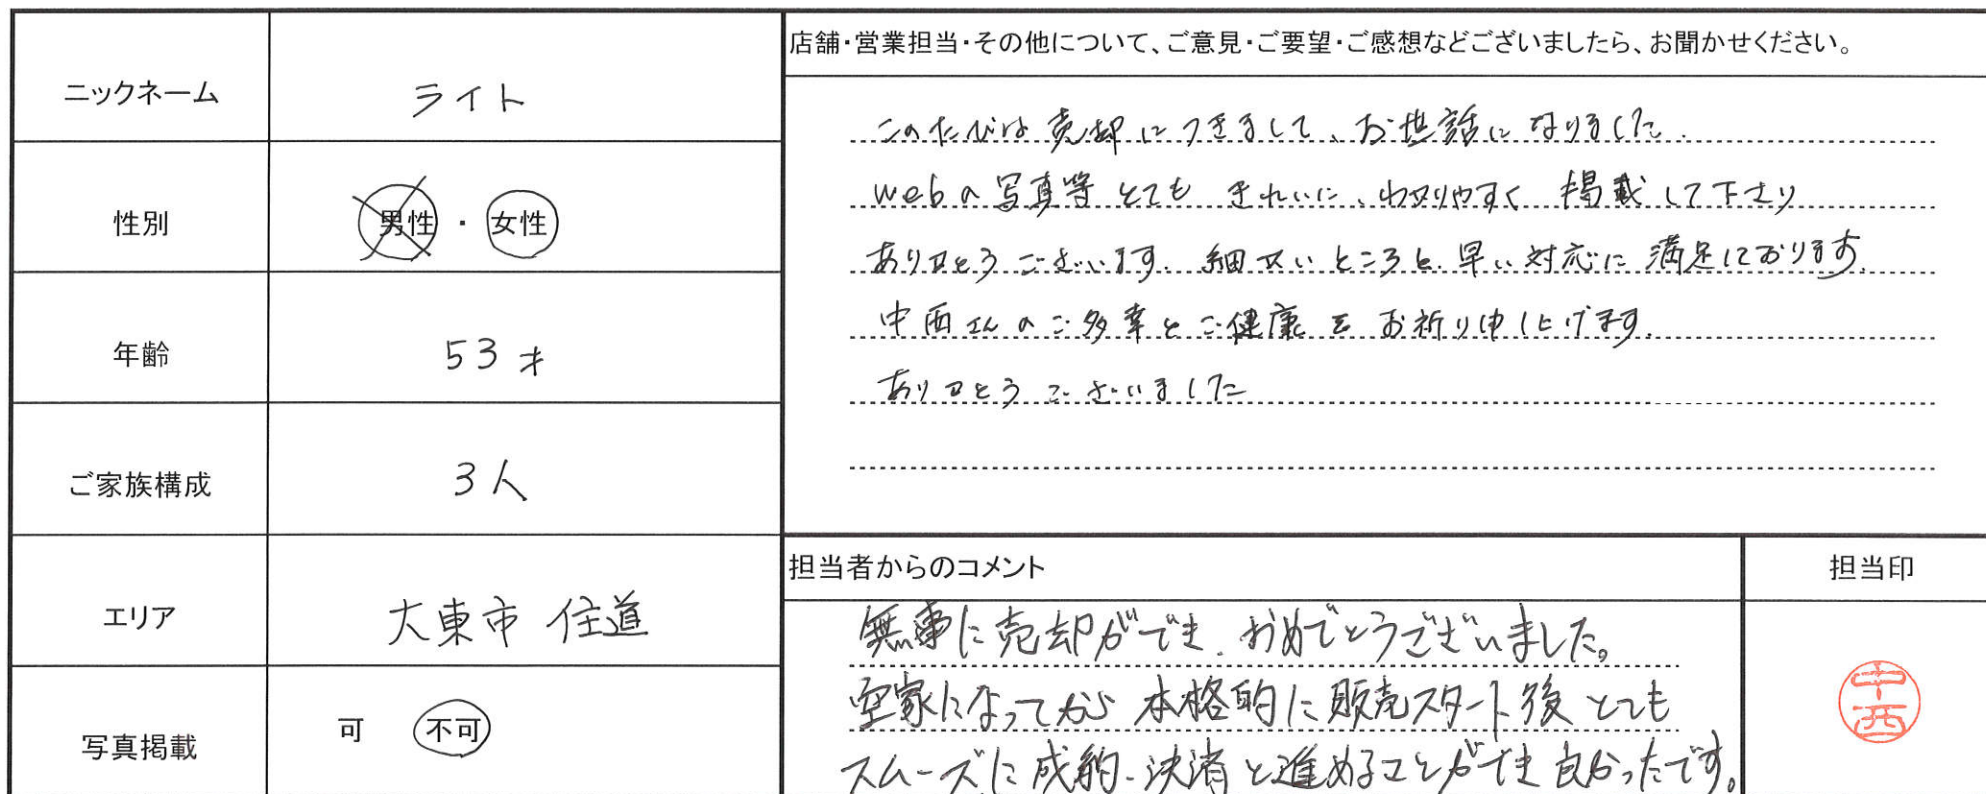 ニックネーム ライト
性別 男性・女性
年齢 53才
ご家族構成 3人
エリア 大東市 住道
写真掲載 可 不可
店舗・営業担当・その他について、ご意見・ご要望・ご感想などございましたら、お聞かせください。
このたびは売却につきまして、お世話になりました.
webの写真等とても きれいに、わかりやすく 掲載して下さり
ありがとうございます. 細かいところと.早い対応に満足しております.
中西さんのご多幸とご健康をお祈り申し上げます.
ありがとうございました
担当者からのコメント
無事に売却ができ、おめでとうございました。
空家になってから 本格的に販売スタート後 とても
スムーズに成約、決済と進めることができ良かったです。
担当印
中西